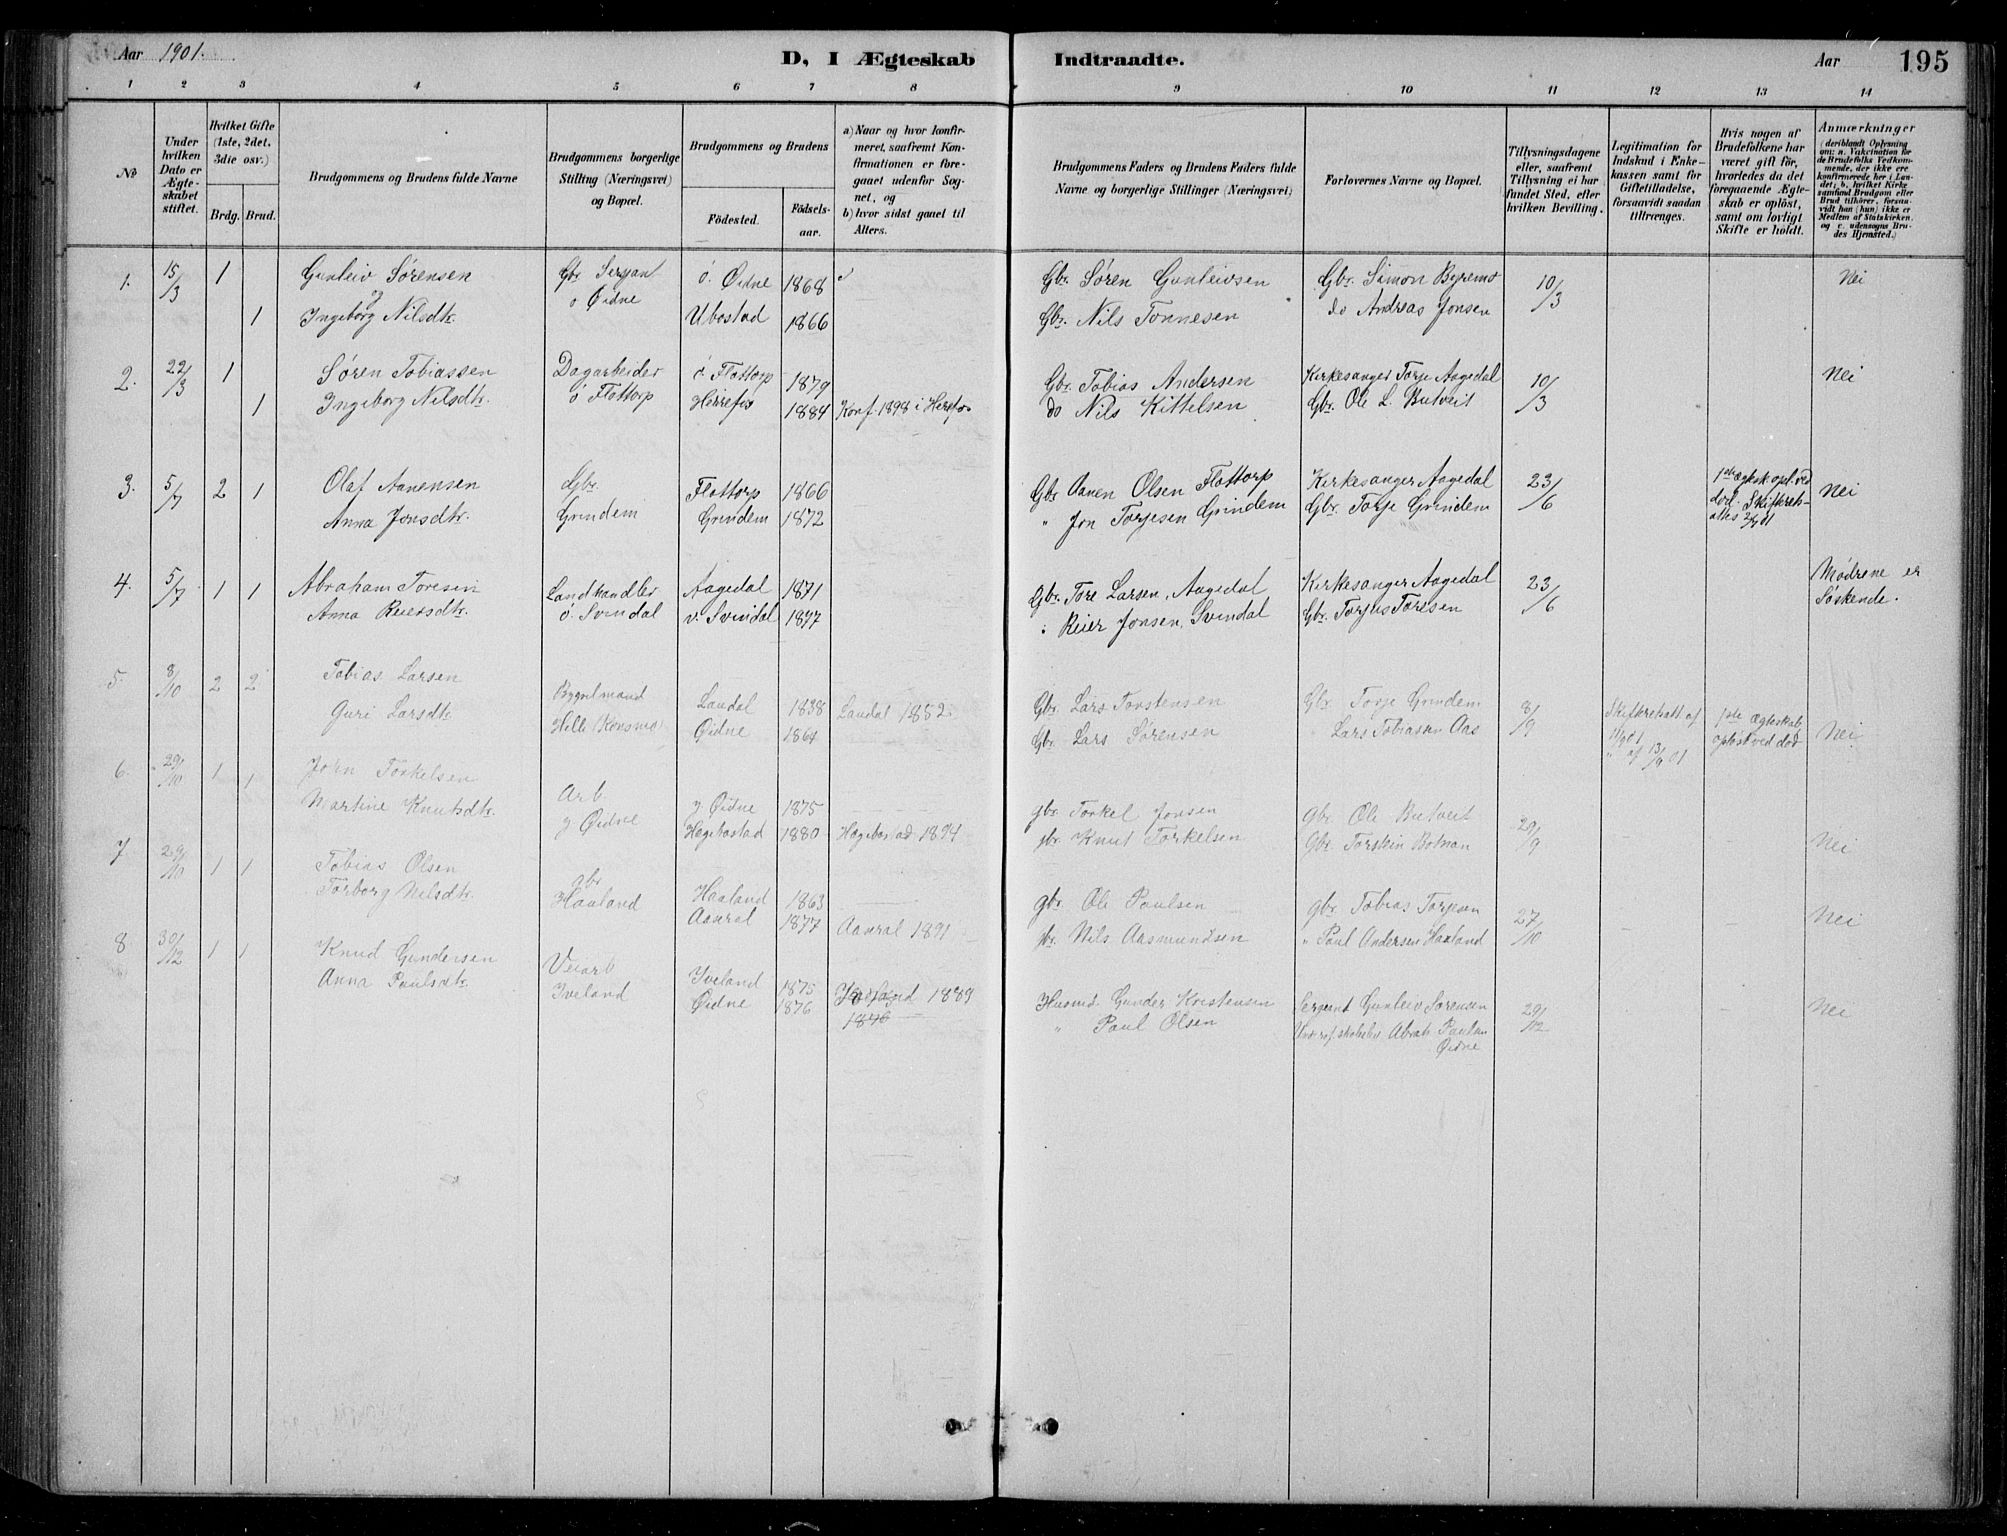 Aar 1901.
D, I Ægteskab Indtraadte.
Aar 195
1 2 3 4 5 6 7 8 9 10 11 12 13 14
No
Under hvilken Dato er Ægteskabet stiftet.
Hvilket Gifte (1ste, 2det, 3die osv.)
Brdg. Brud.
Brudgommens og Brudens fulde Navne
Brudgommens borgerlige Stilling (Næringsvei) og Bopæl.
Brudgommens og Brudens
Födested. Födsels-aar.
a) Naar og hvor konfirmeret, saafremt Konfirmationen er foregaaet udenfor Sognet, og
b) hvor sidst gaaet til Alters.
Brudgommens Faders og Brudens Faders fulde Navne og borgerlige Stillinger (Næringsvei)
Forlovernes Navne og Bopæl.
Tillysningsdagene eller, saafremt Tillysning ei har fundet Sted, efter hvilken Bevilling.
Legitimation for Indskud i Enkekassen samt for Giftetilladelse, forsaavidt saadan tiltrænges.
Hvis nogen af Brudefolkene har været gift för, hvorledes da det foregaaende Ægteskab er oplöst, samt om lovligt Skifte er holdt.
Anmærkninger (deriblandt Oplysning om: a. Vakcination for de Brudefolks Vedkommende, der ikke ere konfirmerede her i Landet; b. hvilket Kirkesamfund Brudgom eller Brud tilhörer, forsaavidt han (hun) ikke er Medlem af Statskirken. og c. udensogns Brudes Hjemsted.)
1. 15/3 1 Gunleiv Sørensen Gbr. Serjant ö. Øidne 1868 Gbr. Søren Gunleivsen Gbr. Simon Byremo 10/3 Nei
1 Ingeborg Nilsdtr. o Øidne Ubostad 1866 Gbr. Nils Tønnesen do Andreas Jonsen
2. 22/3 1 Søren Tobiassen Dagarbeider ö. Flottorp 1879 Gbr. Tobias Andersen Kirkesanger Torje Aagedal 10/3 Nei
1 Ingeborg Nilsdtr. ö Flottorp Herrefos 1884 Konf. 1898 i Herefos do Nils Kittelsen Gbr. Ole L. Butveit
3. 5/7 2 1 Olaf Aanensen Gbr. Flottorp 1866 Gbr Aanen Olsen Flottorp Kirkesanger Aagedal 23/6 1ste Ægtesk. opl. ved död. Skifteret- Nei
Anna Jonsdtr. Grindem Grindem 1872 " Jon Torjesen Grindem Gbr. Torje Grindem
4. 5/7 1 1 Abraham Toresen Landhandler Aagedal 1871 Gbr. Tore Larsen, Aagedal Kirkesanger Aagedal 23/6 Mødrene er
Anna Reiersdtr. ö. Svindal v. Svindal 1877 Reier Jonsen, Svindal Gbr. Torjus Toresen Søskende.
5. 8/10 2 2 Tobias Larsen Bygselmand Laudal 1838 Laudal 1852 Gbr. Lars Torstensen Gbr Torje Grindem 8/9 Skifteretsatt. af 1ste Ægteskab
Guri Larsdtr. Helle Konsmo Øidne 1864 Gbr. Lars Sørensen Lars Tobiasen Aas " af 13/9 01 opløst ved død Nei
6. 29/10 1 1 John Torkelsen Arb y. Øidne 1875 gbr. Torkel Jonsen Gbr. Ole Butveit 29/9
Martine Knutsdtr. y Øidne Hegebostad 1880 Hægebostad 1894 gbr. Knut Torkelsen Gbr. Torstein Botnan Nei
7 29/10 1 1 Tobias Olsen gbr Haaland 1863 gbr. Ole Paulsen gbr. Tobias Torjesen 27/10
Torborg Nilsdtr. Haaland Aaseral 1877 Aaseral 1891 gbr. Nils Aasmundsen " Paul Andersen Haaland Nei
8 30/12 1 1 Knud Gundersen Veiarb Iveland 1875 Iveland 1889 Husmd. Gunder Kristensen Sergeant Gunleiv Sørensen 29/12 Nei
Anna Paulsdtr. Iveland Øidne 1876 1876 " Paul Olsen
Øidne